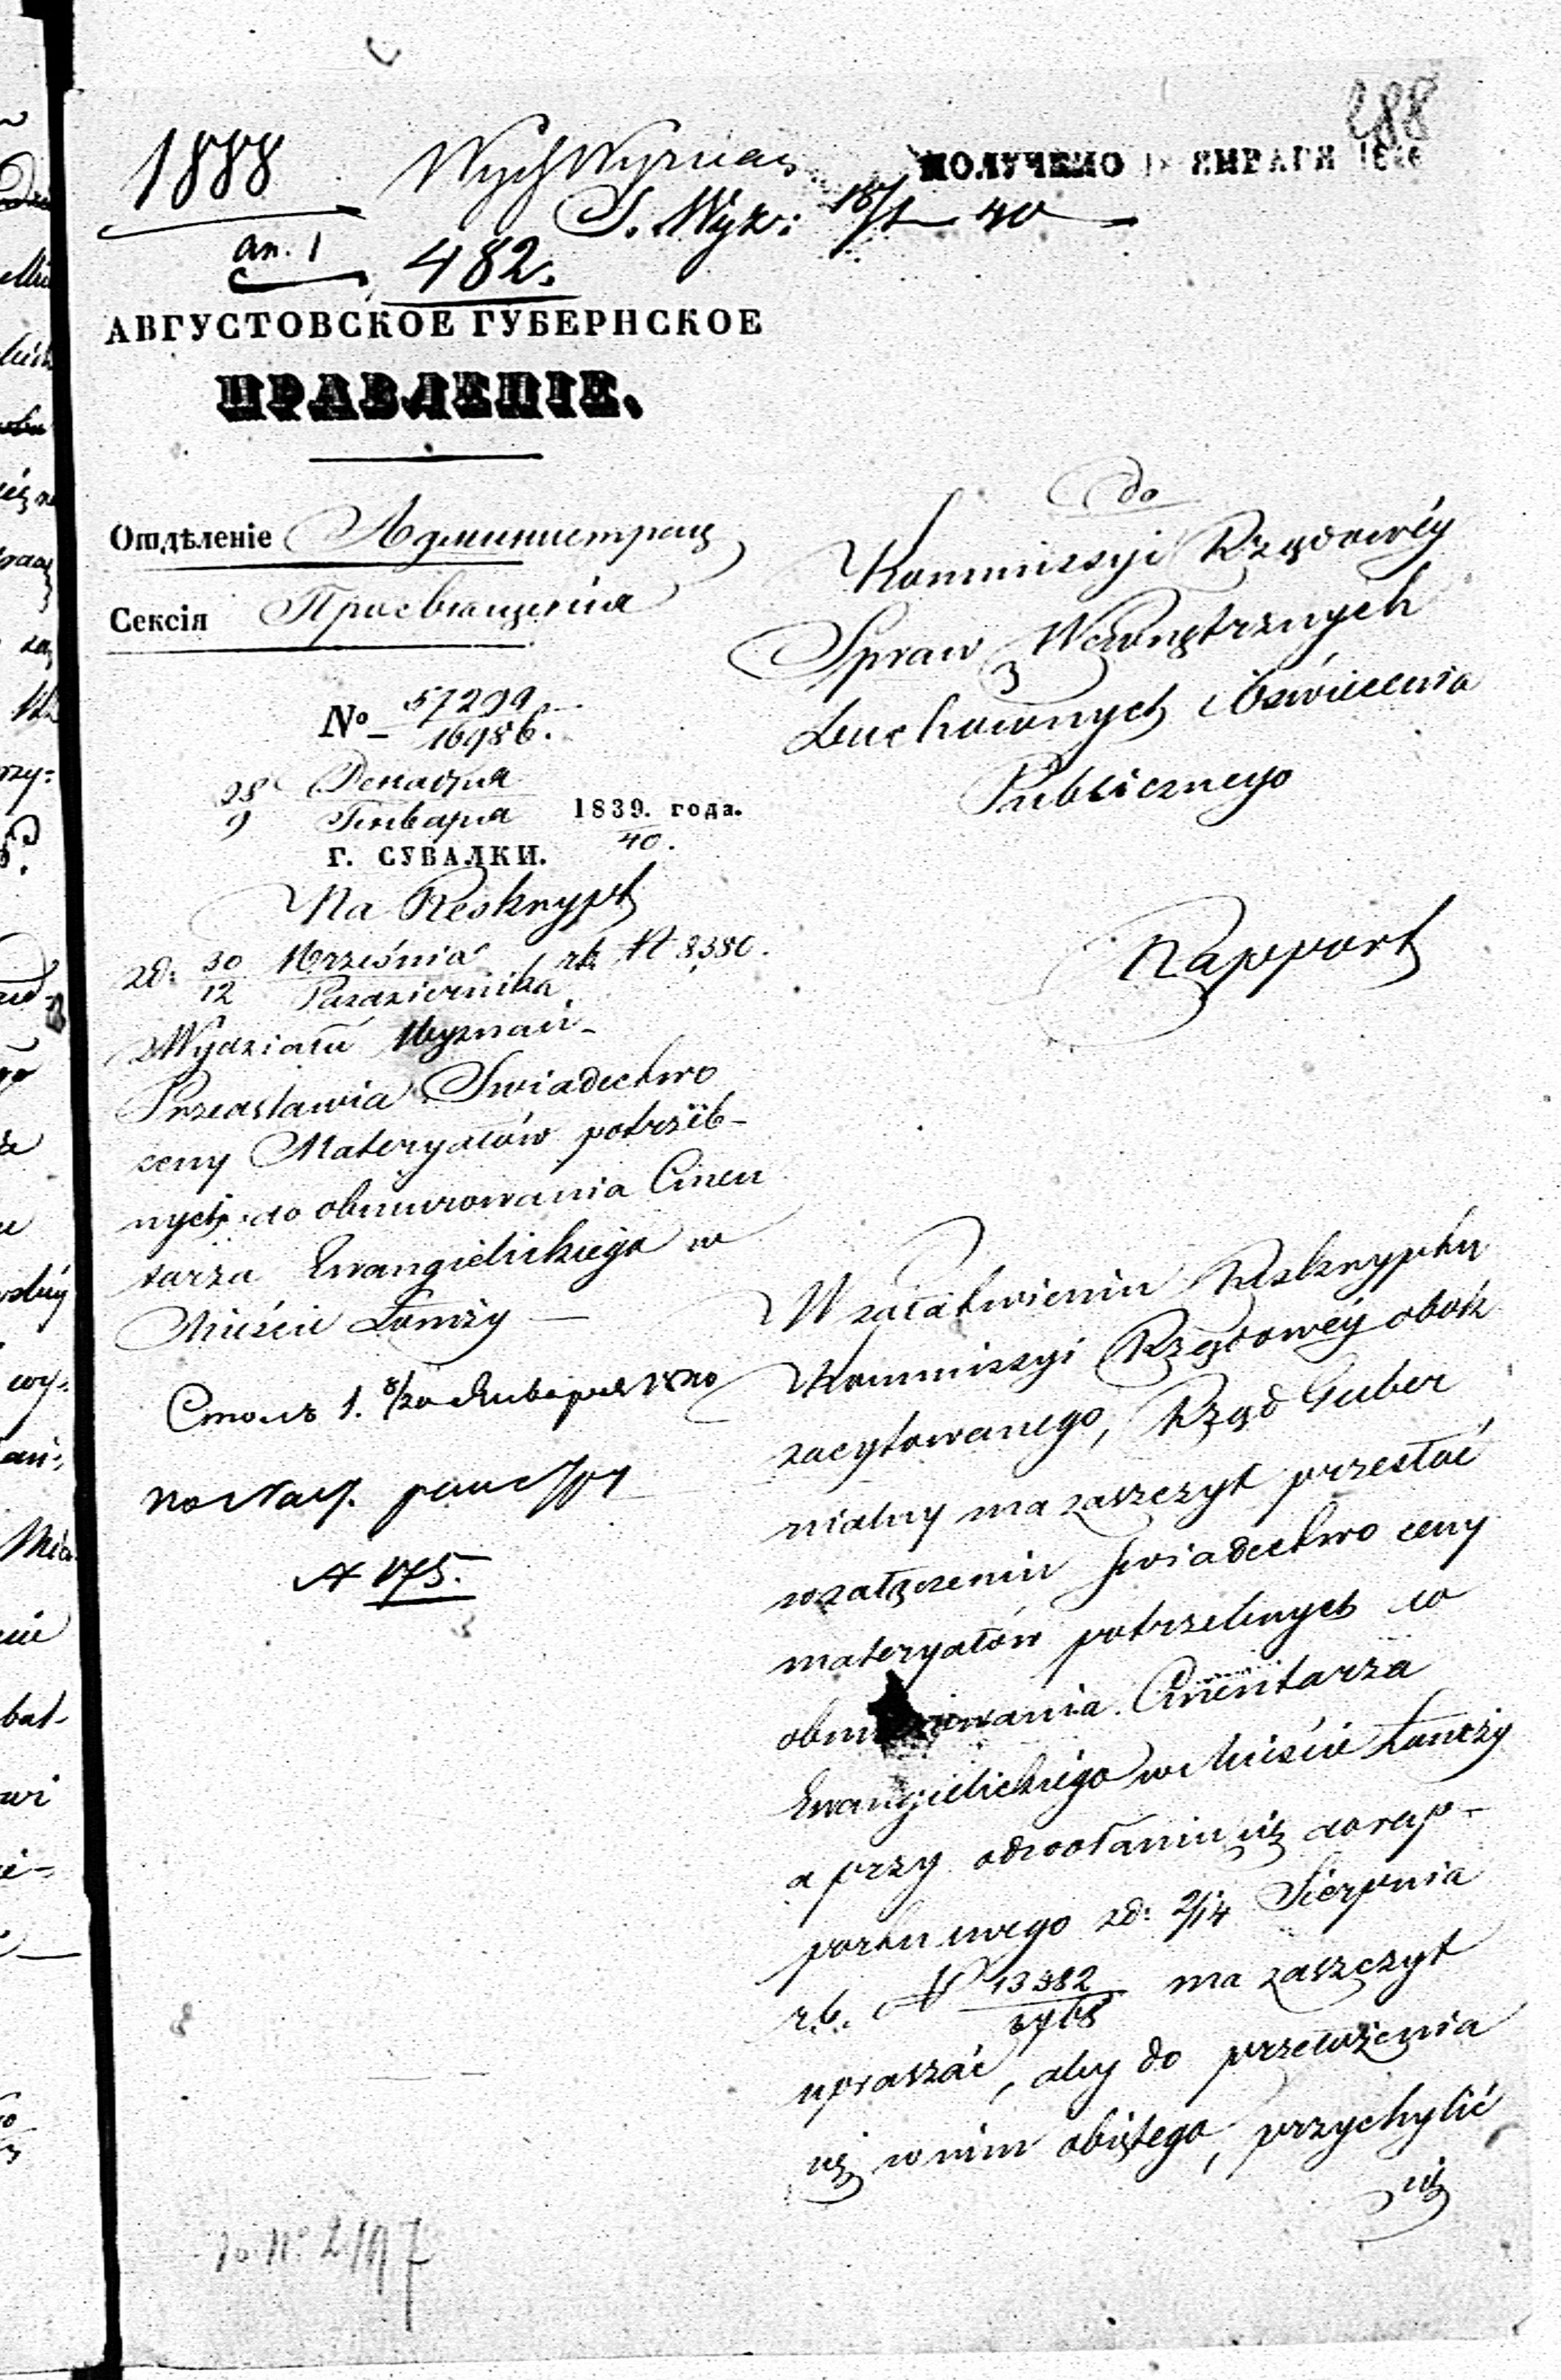 288
1888
WydWyznań
ПОЛУЧЕНО ЯНВАРЯ
S. Wyz: 18/1 40
an. 1
482.
АВГУСТОВСКОЕ ГУБЕРНСКОЕ
ПРАВЛЕНІЕ.
Отдѣленіе Администрац
Сексія Просвѣщенія
№ 57299
16986.
28 Декабря
9 Генваря 1839. года.
40.
Г. СУВАЛКИ.
Na Reskrypt
zd: 30 Września rb N 8380.
12 Pazdziernika
Wydziału Wyznań
Przedstawia Swiadectwo
ceny Materyałów potrzeb-
nych do obmurowania Cmen
tarza Ewangielickiego w
Mieście Łomży —
Столъ 1. 8/20 Января 1840
N 175.
do
Kommissyi Rządowéy
Spraw Wewnętrznych
Duchownych i Oświecenia
Publicznego
Rapport
W załatwieniu Reskryptu
Kommissyi Rządowéy obok
zacytowanego, Rząd Guber
nialny ma zaszczyt przesłać
w załączeniu świadectwo ceny
materyałów potrzebnych do
obmurowania Cmentarza
Ewangielickiego w Mieście Łomży
a przy odwołaniu się do rap-
portu swego zd: 2/14 Sierpnia
r.b. N 13382 ma zaszczyt
upraszać, aby do przełożenia
się w nim objętego, przychylić
się